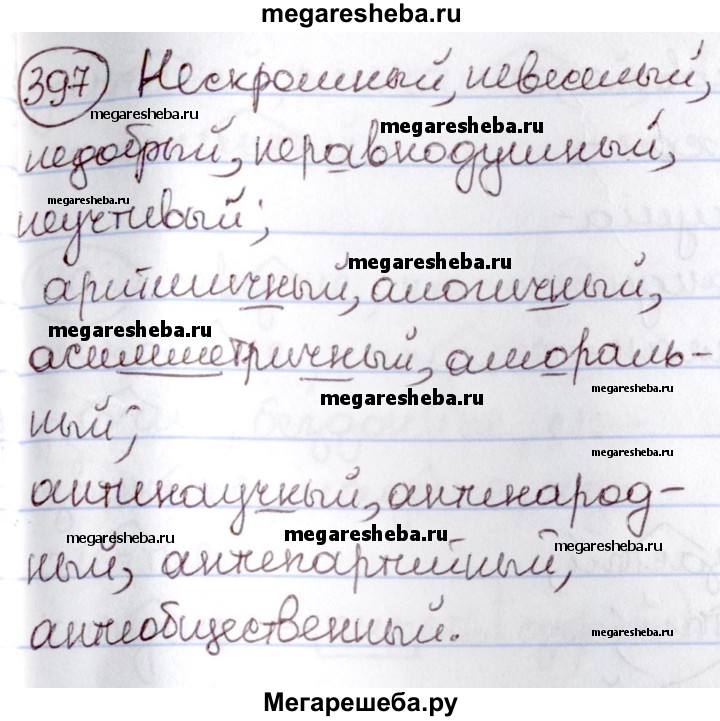 megaresheba.ru
397 Нескромный, невеселый,
megaresheba.ru
megaresheba.ru
недобрый, неравнодушный,
megaresheba.ru
неучтивый;
megaresheba.ru
аритмичный, алогичный,
megaresheba.ru
асимметричный, амораль-
megaresheba.ru
megaresheba.ru
ный;
megaresheba.ru
антинаучный, антинарод-
megaresheba.ru
megaresheba.ru
megaresheba.ru
ный, антипартийный,
антиобщественный.
megaresheba.ru
Мегарешеба.ру